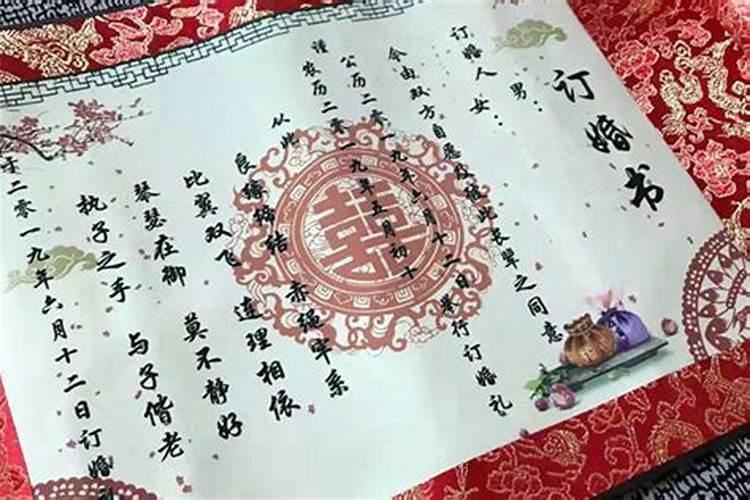 订婚书
男：
订婚人 女：
今由双方自愿及彼此长辈之同意
公历二零一九年六月十二日举行订婚礼
谨 农历二零一九年五月初十
从此
良缘缔结 赤绳牢系
比翼双飞 连理相依
琴瑟在御 莫不静好
执子之手 与子偕老
于二零一九年六月十二日订婚